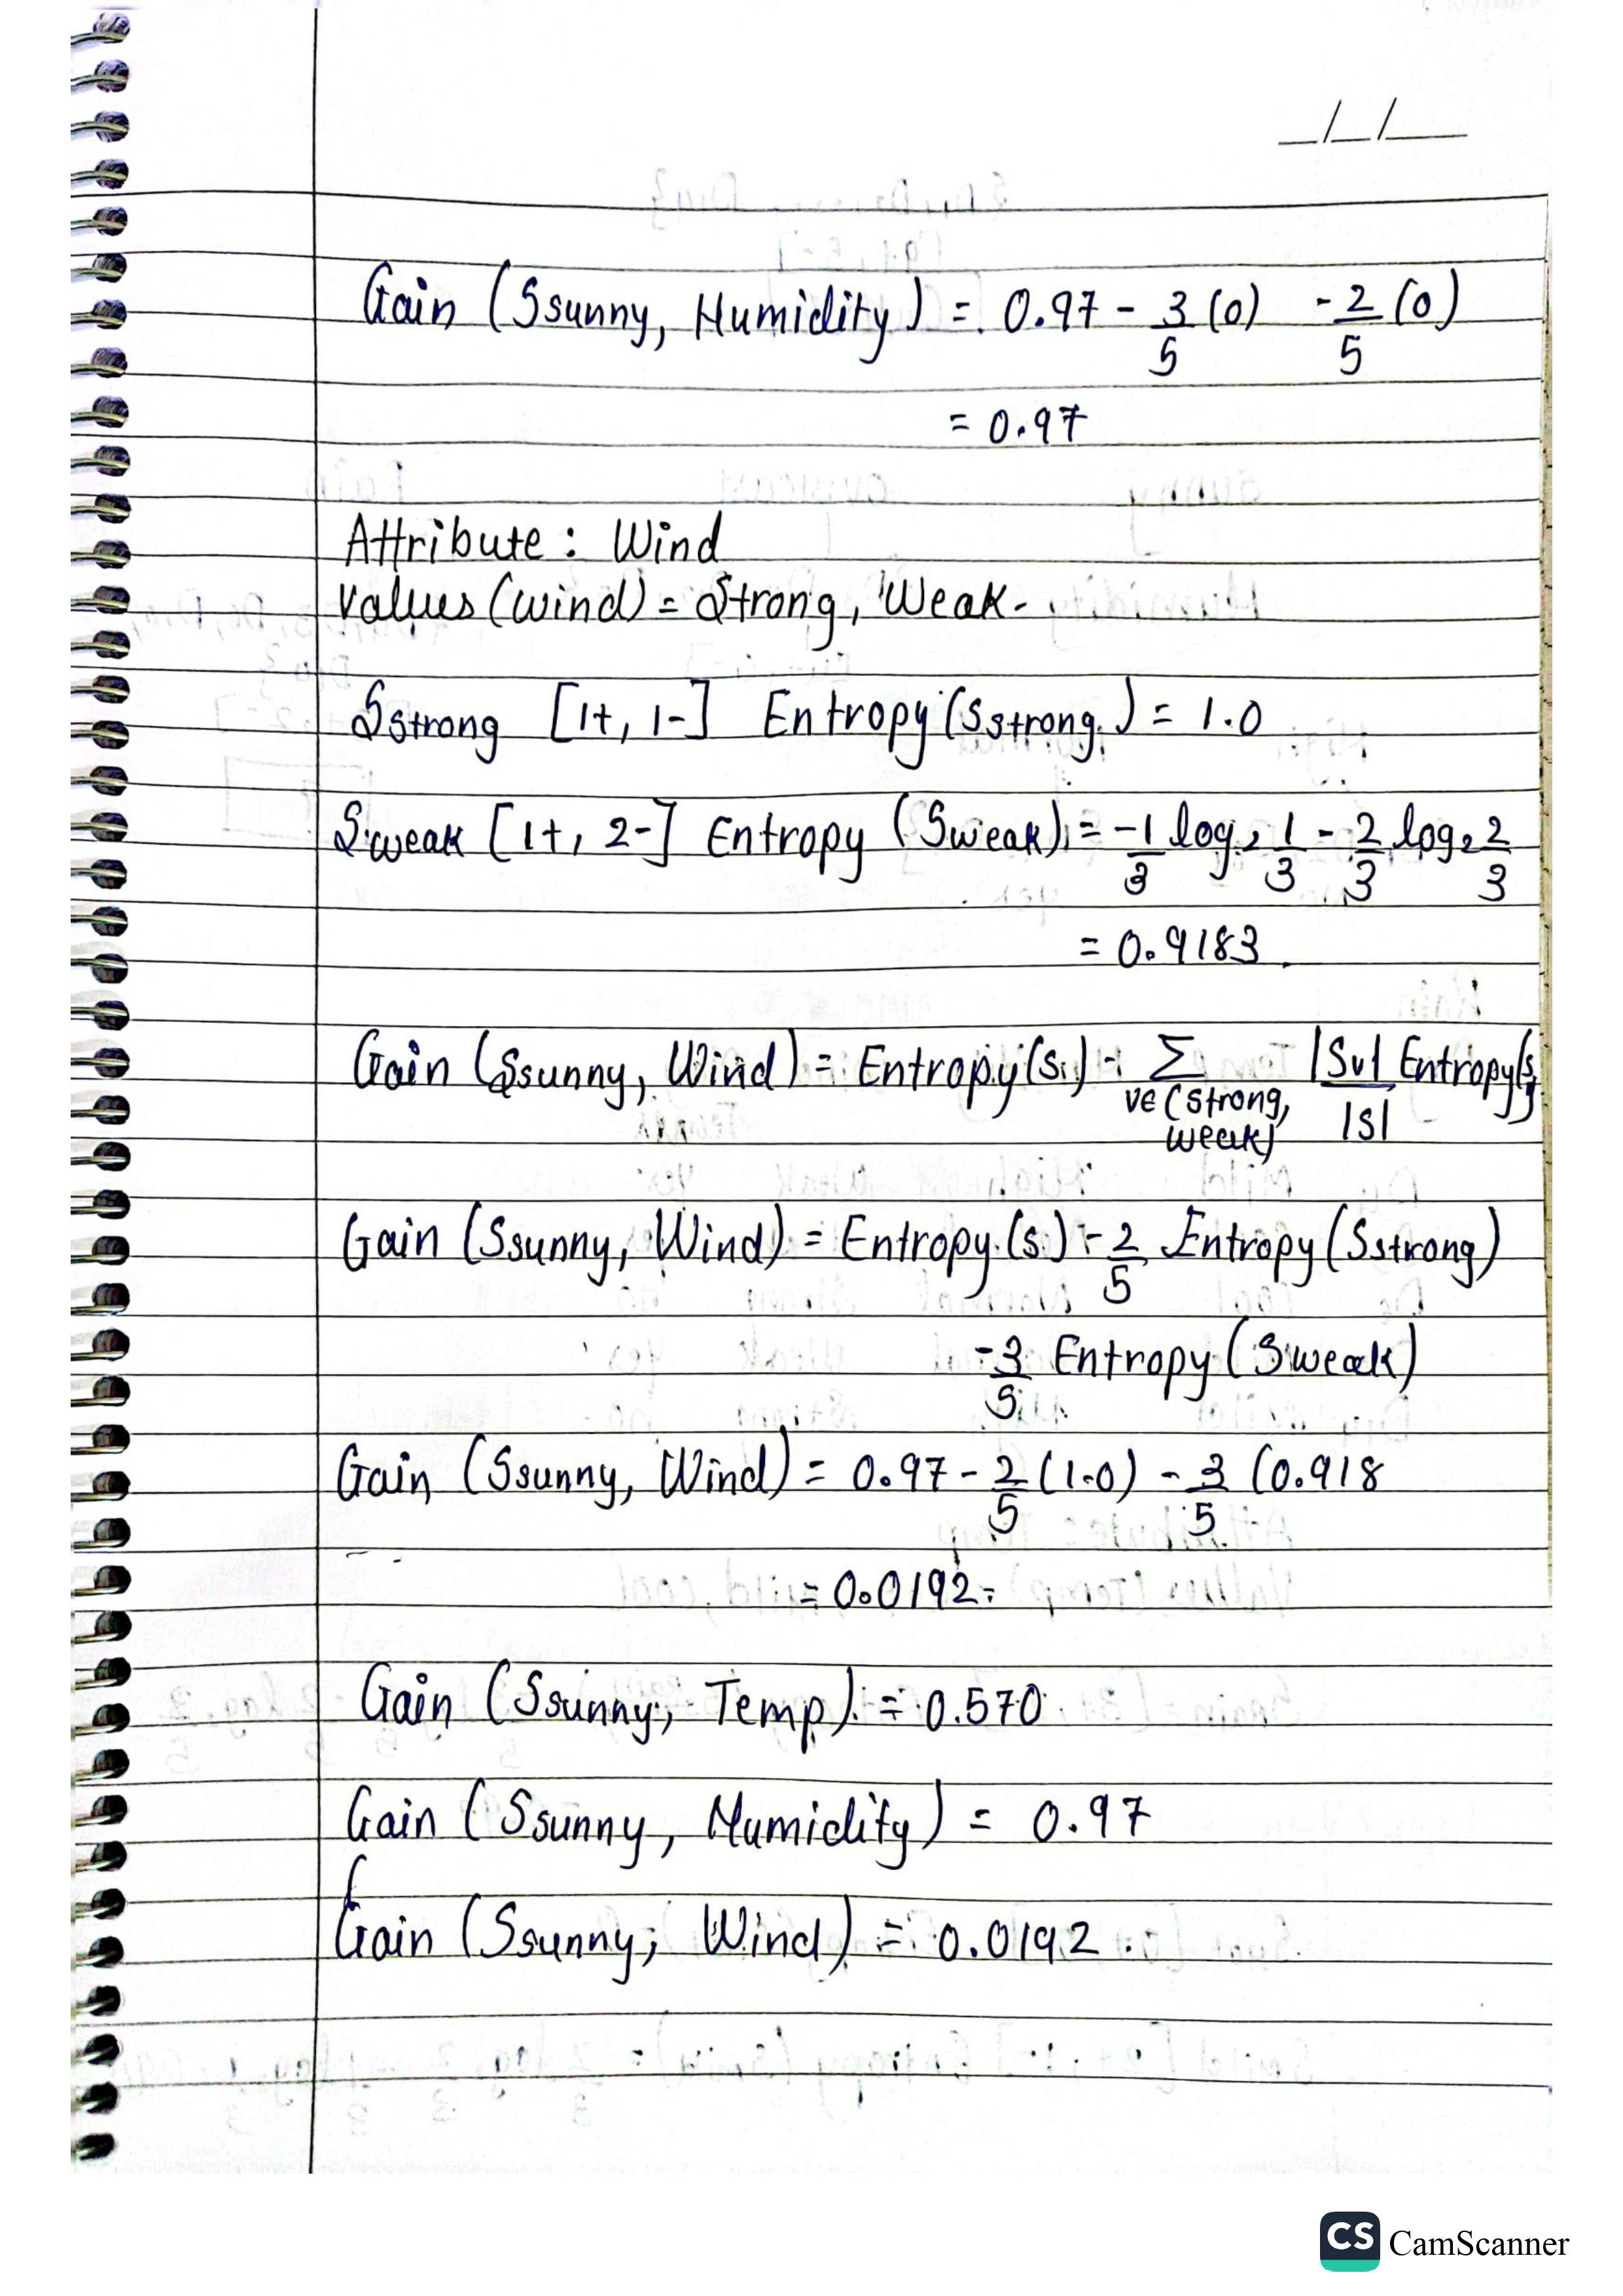 __/__/____
Gain (Ssunny, Humidity) = 0.97 - 3/5 (0) - 2/5 (0)
= 0.97
Attribute : Wind
Values (wind) = Strong, Weak.
Sstrong [1+, 1-] Entropy (Sstrong) = 1.0
Sweak [1+, 2-] Entropy (Sweak) = -1/3 log2 1/3 - 2/3 log2 2/3
= 0.9183
Gain (Ssunny, Wind) = Entropy (S) - Σ v∈(strong, weak) |Sv|/|S| Entropy (S
Gain (Ssunny, Wind) = Entropy (S) - 2/5 Entropy (Sstrong)
- 3/5 Entropy (Sweak)
Gain (Ssunny, Wind) = 0.97 - 2/5 (1.0) - 3/5 (0.918
= 0.0192
Gain (Ssunny, Temp) = 0.570
Gain (Ssunny, Humidity) = 0.97
Gain (Ssunny, Wind) = 0.0192
CS CamScanner